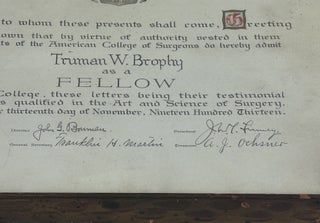 to whom these presents shall come, Greeting
own that by virtue of authority vested in them
ts of the American College of Surgeons do hereby admit
Truman W. Brophy
as a
FELLOW
College, these letters being their testimonial
is qualified in the Art and Science of Surgery.
thirteenth day of November, Nineteen Hundred Thirteen.
Director John G. Bowman President John M. T. Finney
General Secretary Franklin H. Martin A. J. Ochsner